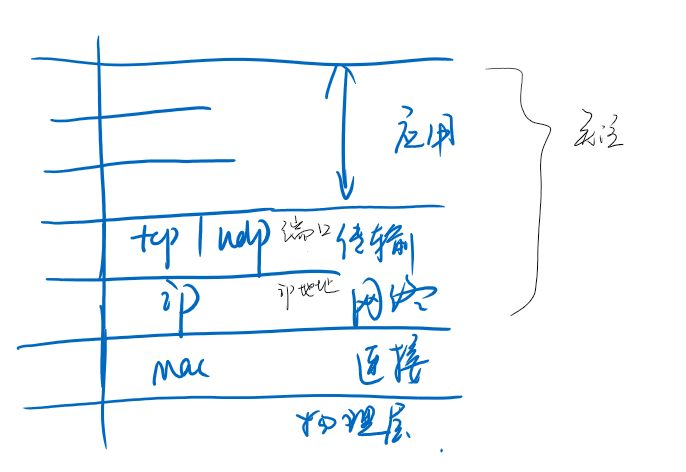 应用
关注
tcp | udp 端口 传输
ip ip地址 网络
mac 连接
物理层